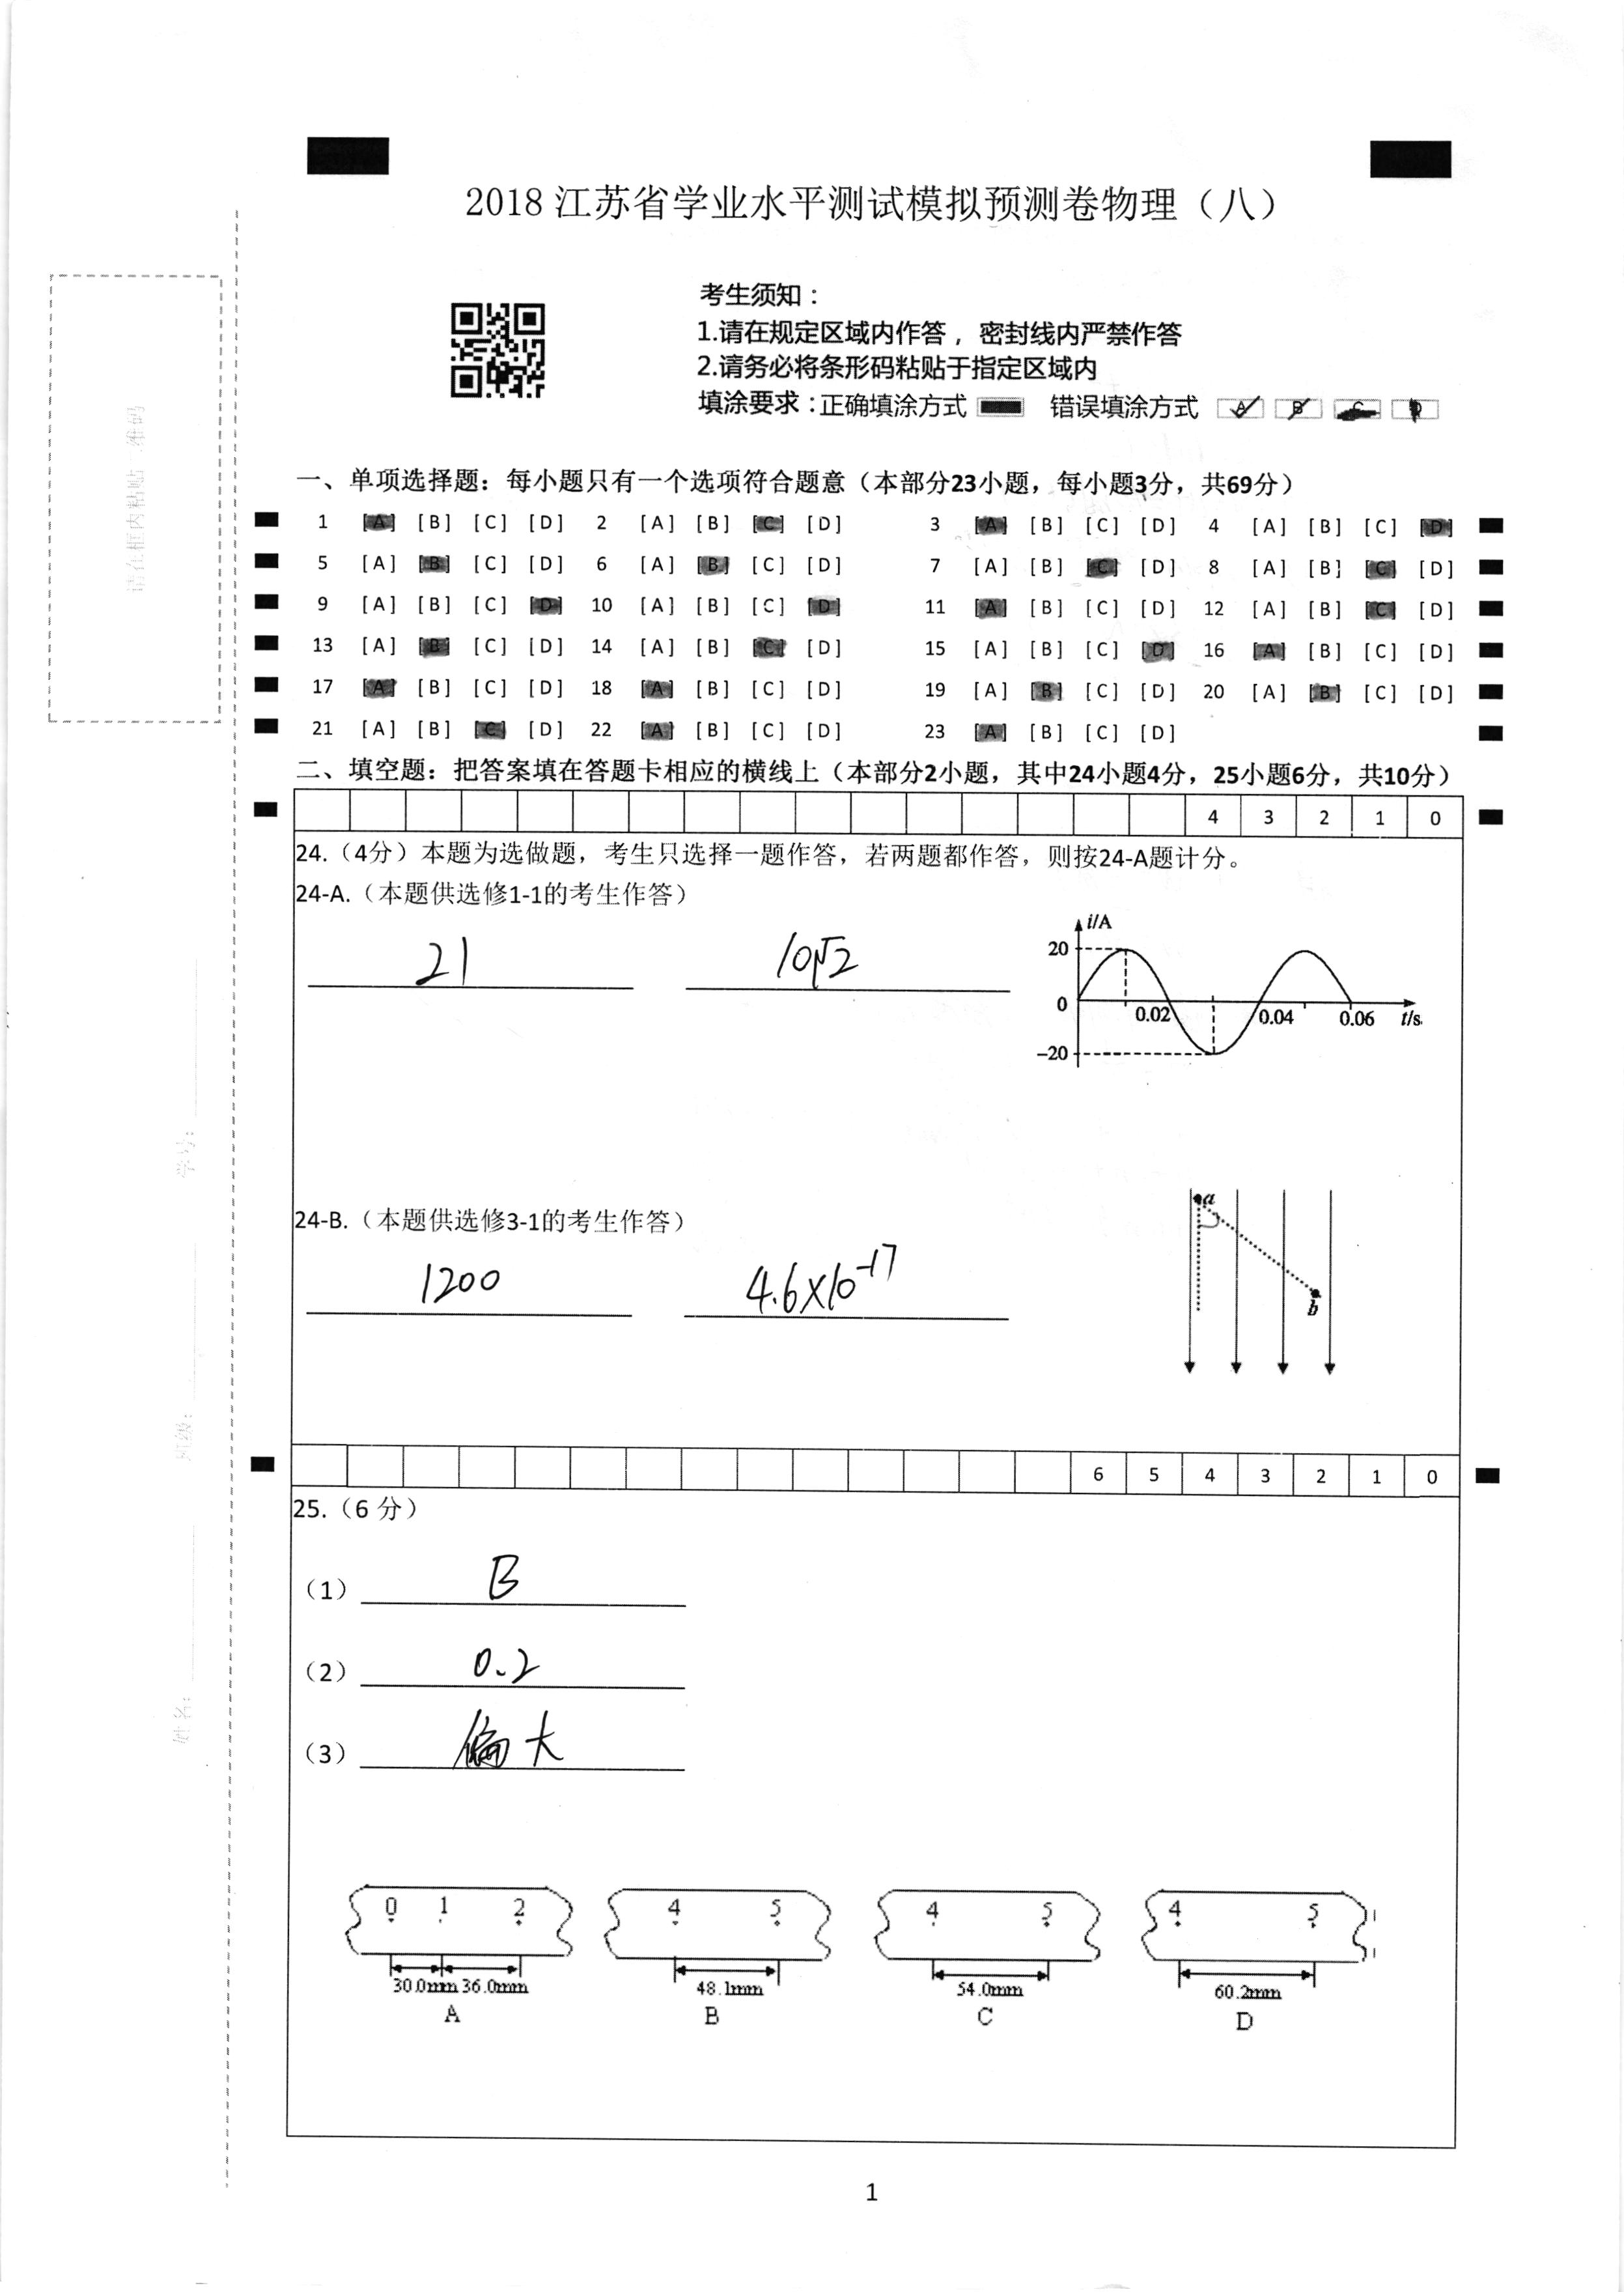 2018江苏省学业水平测试模拟预测卷物理（八）
考生须知：
1.请在规定区域内作答，密封线内严禁作答
2.请务必将条形码粘贴于指定区域内
填涂要求：正确填涂方式 错误填涂方式 A B C D
一、单项选择题：每小题只有一个选项符合题意（本部分23小题，每小题3分，共69分）
1 [A] [B] [C] [D] 2 [A] [B] [C] [D] 3 [A] [B] [C] [D] 4 [A] [B] [C] [D]
5 [A] [B] [C] [D] 6 [A] [B] [C] [D] 7 [A] [B] [C] [D] 8 [A] [B] [C] [D]
9 [A] [B] [C] [D] 10 [A] [B] [C] [D] 11 [A] [B] [C] [D] 12 [A] [B] [C] [D]
13 [A] [B] [C] [D] 14 [A] [B] [C] [D] 15 [A] [B] [C] [D] 16 [A] [B] [C] [D]
17 [A] [B] [C] [D] 18 [A] [B] [C] [D] 19 [A] [B] [C] [D] 20 [A] [B] [C] [D]
21 [A] [B] [C] [D] 22 [A] [B] [C] [D] 23 [A] [B] [C] [D]
二、填空题：把答案填在答题卡相应的横线上（本部分2小题，其中24小题4分，25小题6分，共10分）
4 3 2 1 0
24.（4分）本题为选做题，考生只选择一题作答，若两题都作答，则按24-A题计分。
24-A.（本题供选修1-1的考生作答）
21 10√2
i/A
20
0 0.02 0.04 0.06 t/s
-20
24-B.（本题供选修3-1的考生作答）
1200 4.6×10⁻¹⁷
a
b
6 5 4 3 2 1 0
25.（6 分）
（1） B
（2） 0.2
（3） 偏大
0 1 2 4 5 4 5 4 5
30.0mm 36.0mm 48.1mm 54.0mm 60.2mm
A B C D
1
请在框内粘贴二维码
学号：
班级：
姓名：